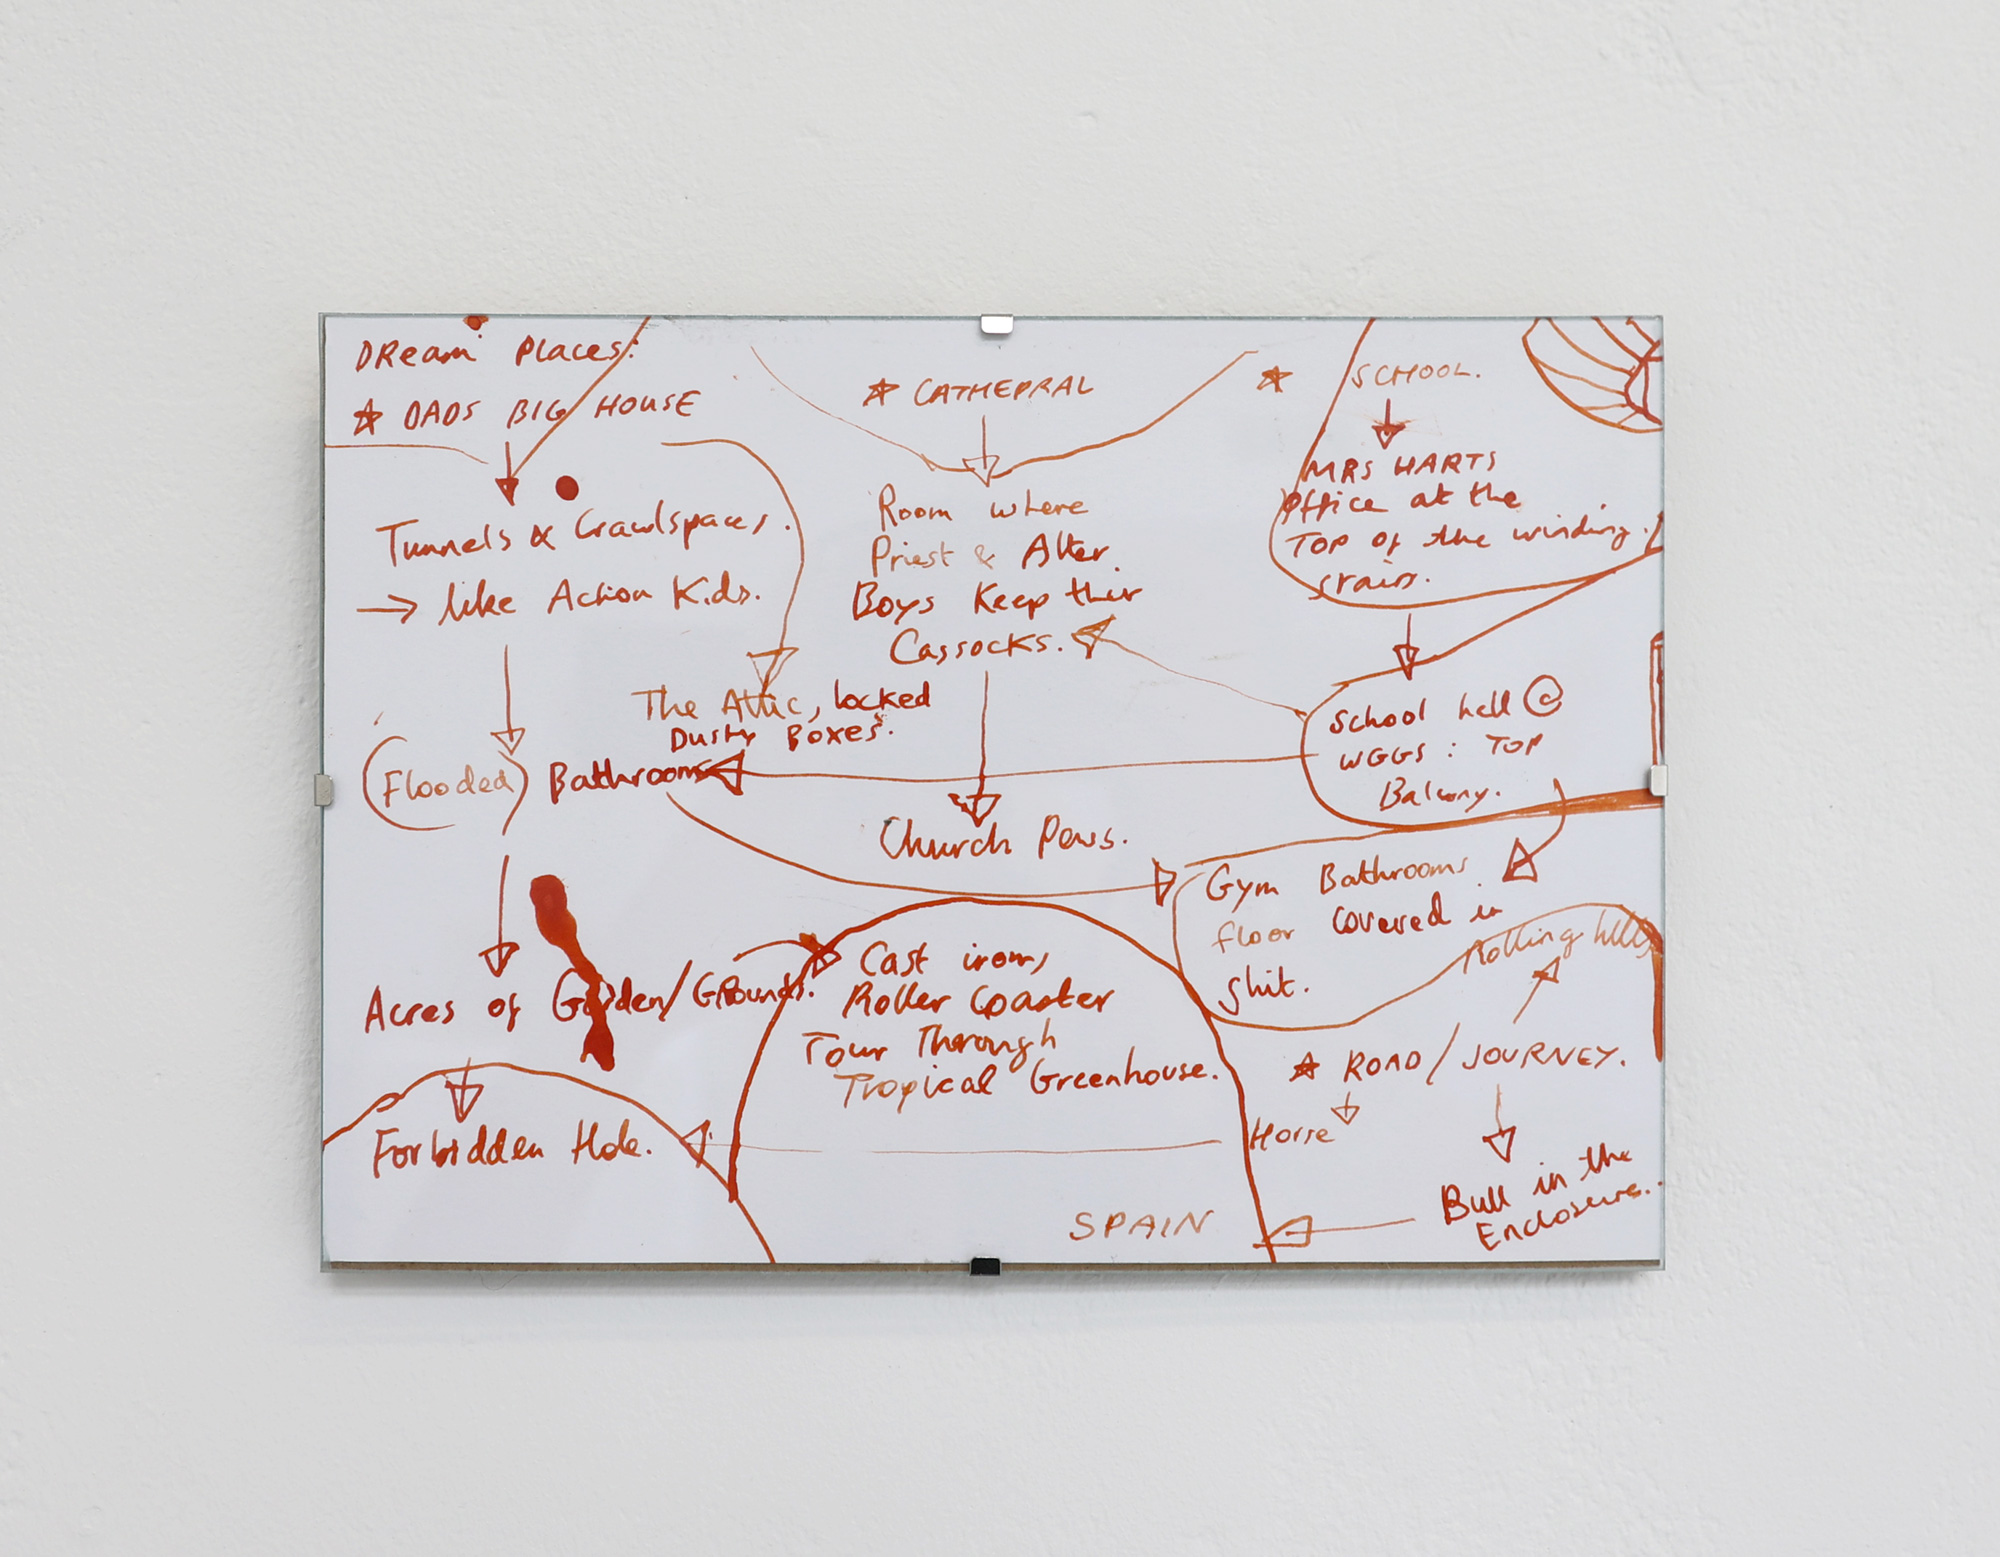 DReam Places:
★ DADS BIG HOUSE
Tunnels & Crawlspaces.
→ like Action Kids.
The Attic, locked
Dusty Boxes.
(Flooded) Bathrooms
Acres of Garden/GROUNDS.
Forbidden Hole.
★ CATHEDRAL
Room where
Priest & Alter
Boys Keep their
Cassocks.
Church Pews.
Cast iron,
Roller Coaster
Tour Through
Tropical Greenhouse.
SPAIN
★ SCHOOL.
MRS HARTS
office at the
Top of the winding
stairs.
School hell @
WGGS: TOP
Balcony.
Gym Bathrooms
floor covered in
shit.
Rolling hills
★ ROAD / JOURNEY.
Horse
Bull in the
Enclosure..